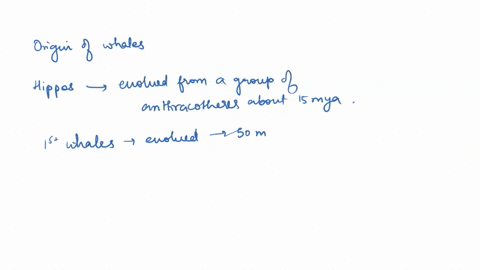 Origin of whales
Hippos → evolved from a group of
anthracotheres about 15 mya.
1st whales → evolved → 50 m